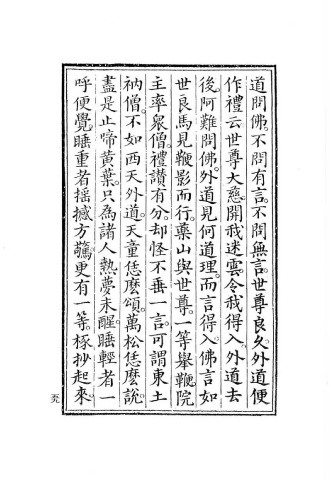 道問佛。不問有言。不問無言。世尊良久。外道便
作禮云世尊大慈。開我迷雲。令我得入。外道去
後。阿難問佛。外道見何道理。而言得入。佛言如
世良馬見鞭影而行。藥山與世尊。一等舉鞭。院
主率衆僧。禮讃有分。却怪不垂一言。可謂東土
衲僧。不如西天外道。天童恁麽頌。萬松恁麽說。
盡是止啼黄葉。只為諸人熟夢未醒。睡輕者一
呼便覺。睡重者揺撼方驚。更有一等。椓抄起來。